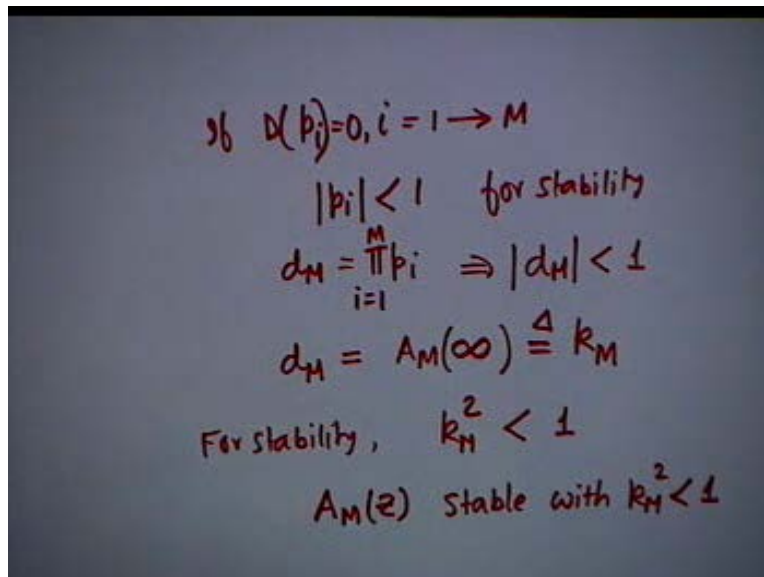 If D(pi)=0, i = 1 → M
|pi| < 1 for stability
dM = M∏i=1 pi ⇒ |dM| < 1
dM = AM(∞) ≜ kM
For stability, kM² < 1
AM(z) stable with kM² < 1